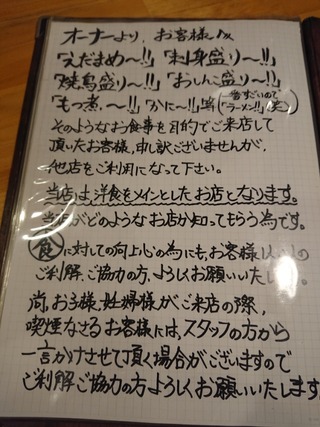 オーナーより、お客様へ
「えだまめ〜!!」「刺身盛り〜!!」
「焼鳥盛り〜!!」「おしんこ盛り〜!!」
「もつ煮、〜!!」「かに〜!!」等(一番すごいので「ラーメン!!」(笑)
そのようなお食事を目的でご来店して
頂いたお客様、申し訳ございませんが、
他店をご利用になって下さい。
当店は洋食をメインとしたお店となります。
当店がどのようなお店か知ってもらう為です。
食に対しての向上心の為にも、お客様
ご利解、ご協力の方、よろしくお願いいたします。
尚、お子様、妊婦様がご来店の際、
喫煙なさるお客様には、スタッフの方から
一言かけさせて頂く場合がございますので
ご利解ご協力の方よろしくお願いいたします